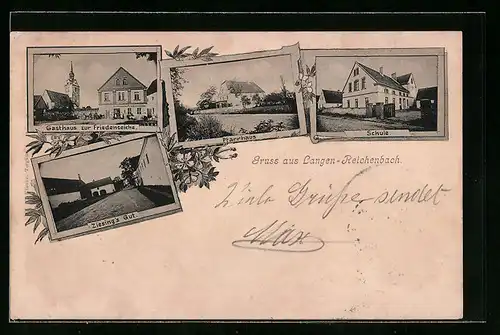 Gasthaus zur Friedenseiche.
Pfarrhaus
Schule.
Ziesing's Gut.
Gruss aus Langen-Reichenbach.
Viele Grüße sendet
Max